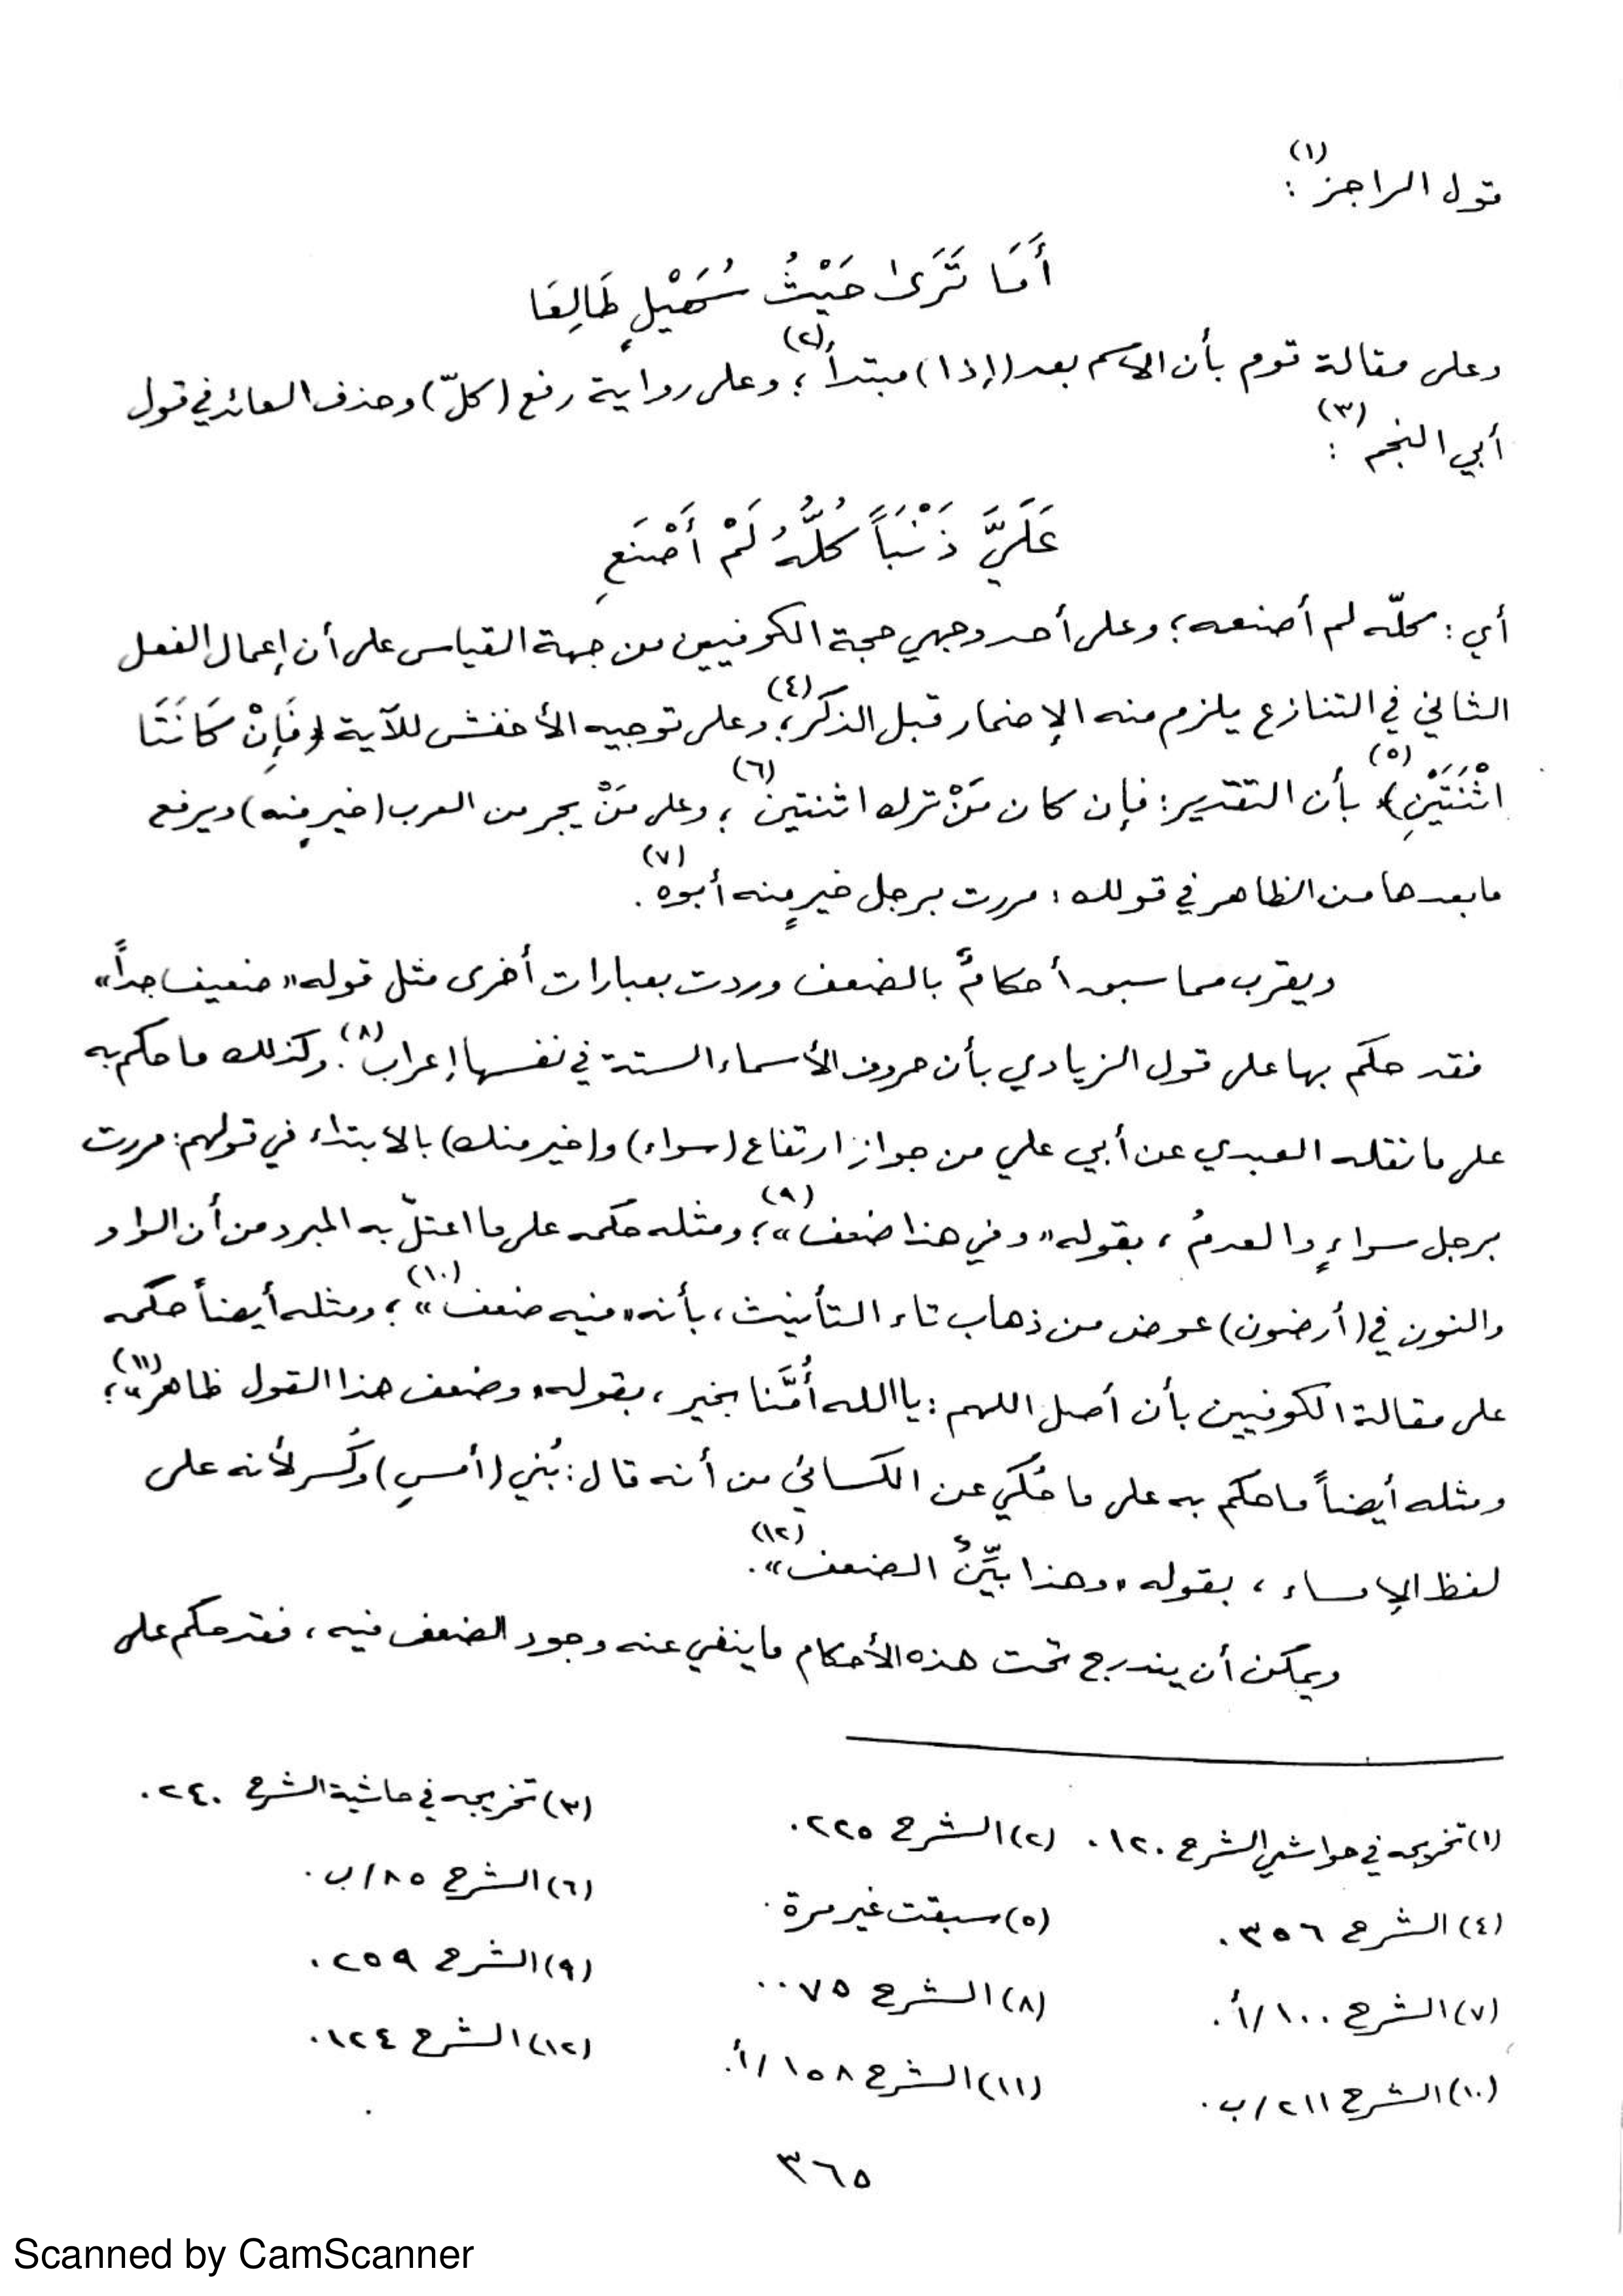 قول الراجز(١) :
أَمَا تَرَىٰ حَيْثُ سُهَيْلٍ طَالِعَا
وعلى مقالة قوم بأن الاسم بعد (إذا) مبتدأ(٢)؛ وعلى رواية رفع (كلّ) وحذف العائد في قول
أبي النجم(٣) :
عَلَيَّ ذَنْبَاً كُلُّهُ لَمْ أَصْنَعِ
أي : كلّه لم أصنعه؛ وعلى أحد وجهي حجة الكوفيين من جهة القياس على أن إعمال الفعل
الثاني في التنازع يلزم منه الإضمار قبل الذكر(٤)؛ وعلى توجيه الأخفش للآية ﴿فَإِنْ كَانَتَا
اثْنَتَيْنِ﴾(٥) بأن التقدير: فإن كان مَنْ ترك اثنتين(٦)؛ وعلى مَنْ يجر من العرب (خيرٍ منه) ويرفع
ما بعدها من الظاهر في قولك : مررت برجل خيرٍ منه أبوه(٧).
ويقرب مما سبق أحكامٌ بالضعف وردت بعبارات أخرى مثل قوله «ضعيف جداً»
فقد حكم بها على قول الزيادي بأن حروف الأسماء الستة في نفسها إعراب(٨). وكذلك ما حكم به
على ما نقله العبدي عن أبي علي من جواز ارتفاع (سواء) و(خير منك) بالابتداء في قولهم: مررت
برجل سواءٍ والعدمُ ، بقوله «وفي هذا ضعف»(٩)؛ ومثله حكمه على ما اعتلّ به المبرد من أن الواو
والنون في (أرضون) عوض من ذهاب تاء التأنيث، بأنه «فيه ضعف»(١٠)؛ ومثله أيضاً حكمه
على مقالة الكوفيين بأن أصل اللهم : يا الله أُمَّنا بخير ، بقوله «وضعف هذا القول ظاهر»(١١)؛
ومثله أيضاً ما حكم به على ما حُكي عن الكسائي من أنه قال: بُني (أمسِ) وكُسر لأنه على
لفظ الإمساء ، بقوله «وهذا بيِّنُ الضعف»(١٢).
ويمكن أن يندرج تحت هذه الأحكام ما ينفي عنه وجود الضعف فيه ، فقد حكم على
(١) تخريجه في حواشي الشرح ١٢٠. (٢) الشرح ٢٢٥. (٣) تخريجه في حاشية الشرح ٢٤٠.
(٤) الشرح ٣٥٦. (٥) سبقت غير مرة. (٦) الشرح ٨٥/ب.
(٧) الشرح ١٠٠/أ. (٨) الشرح ٧٥. (٩) الشرح ٢٥٩.
(١٠) الشرح ٢١١/ب. (١١) الشرح ١٥٨/أ. (١٢) الشرح ١٢٤.
٣٦٥
Scanned by CamScanner